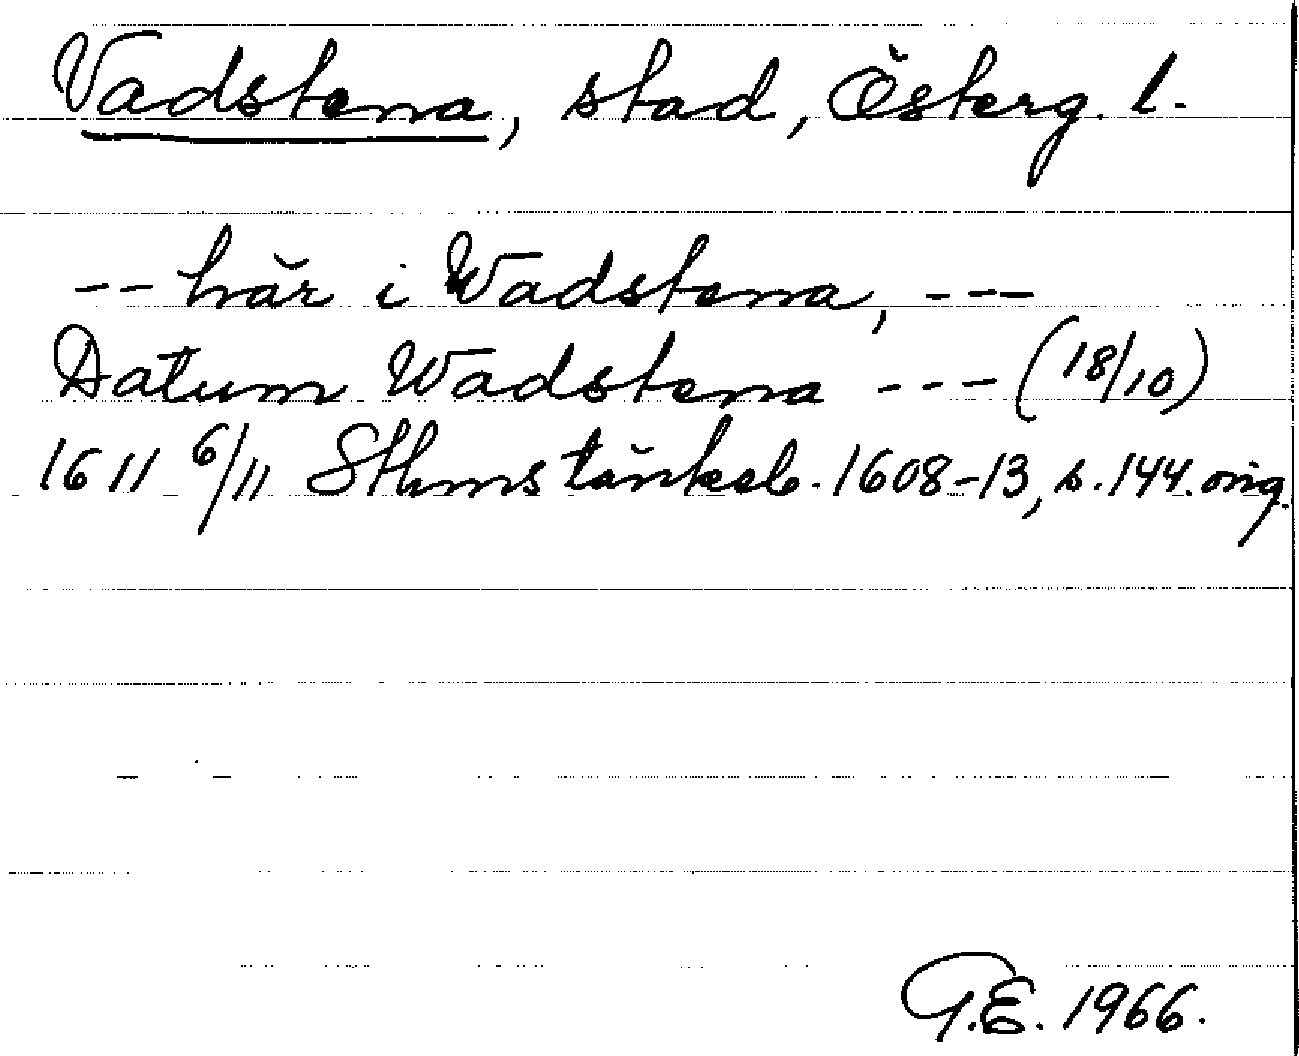 Vadstena, stad, Österg. l.
-- här i Wadstena, ---
Datum Wadstena --- (18/10)
1611 6/11 Sthms tänkeb. 1608-13, s. 144. orig.
G.E. 1966.